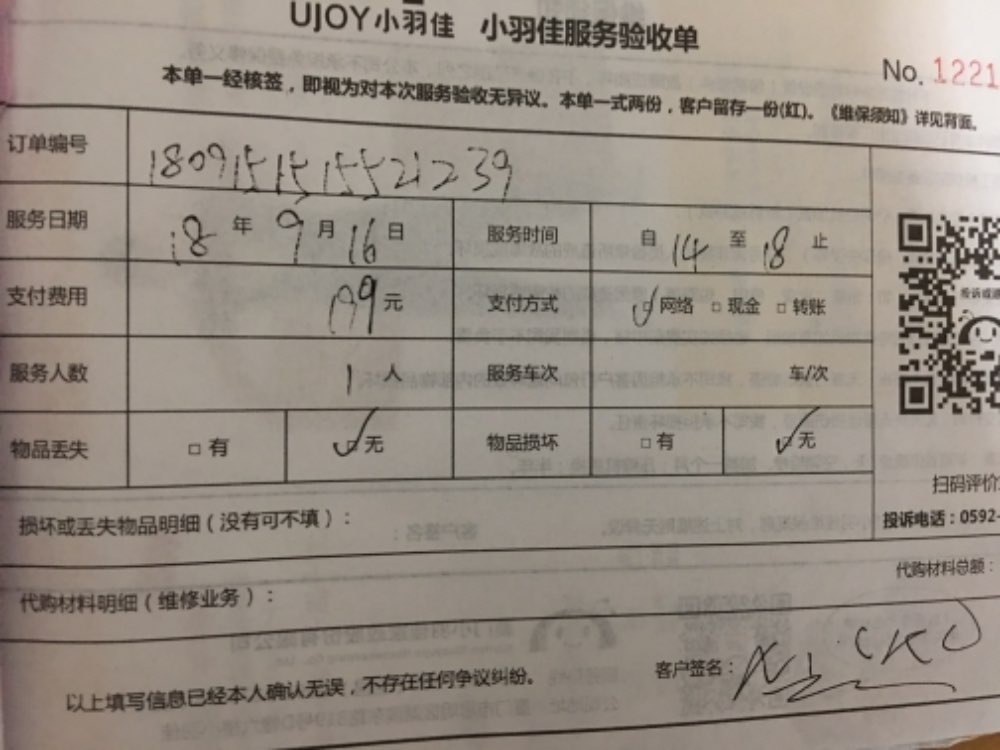 UJOY小羽佳 小羽佳服务验收单
No. 1221
本单一经核签，即视为对本次服务验收无异议。本单一式两份，客户留存一份(红)。《维保须知》详见背面。
订单编号 1809151515521239
服务日期 18 年 9 月 16 日 服务时间 自 14 至 18 止
支付费用 199 元 支付方式 网络 □ 现金 □ 转账
服务人数 1 人 服务车次 车/次
物品丢失 □ 有 ☑ 无 物品损坏 □ 有 ☑ 无
扫码评价
损坏或丢失物品明细（没有可不填）：
投诉电话：0592-
代购材料总额：
代购材料明细（维修业务）：
客户签名：
以上填写信息已经本人确认无误，不存在任何争议纠纷。